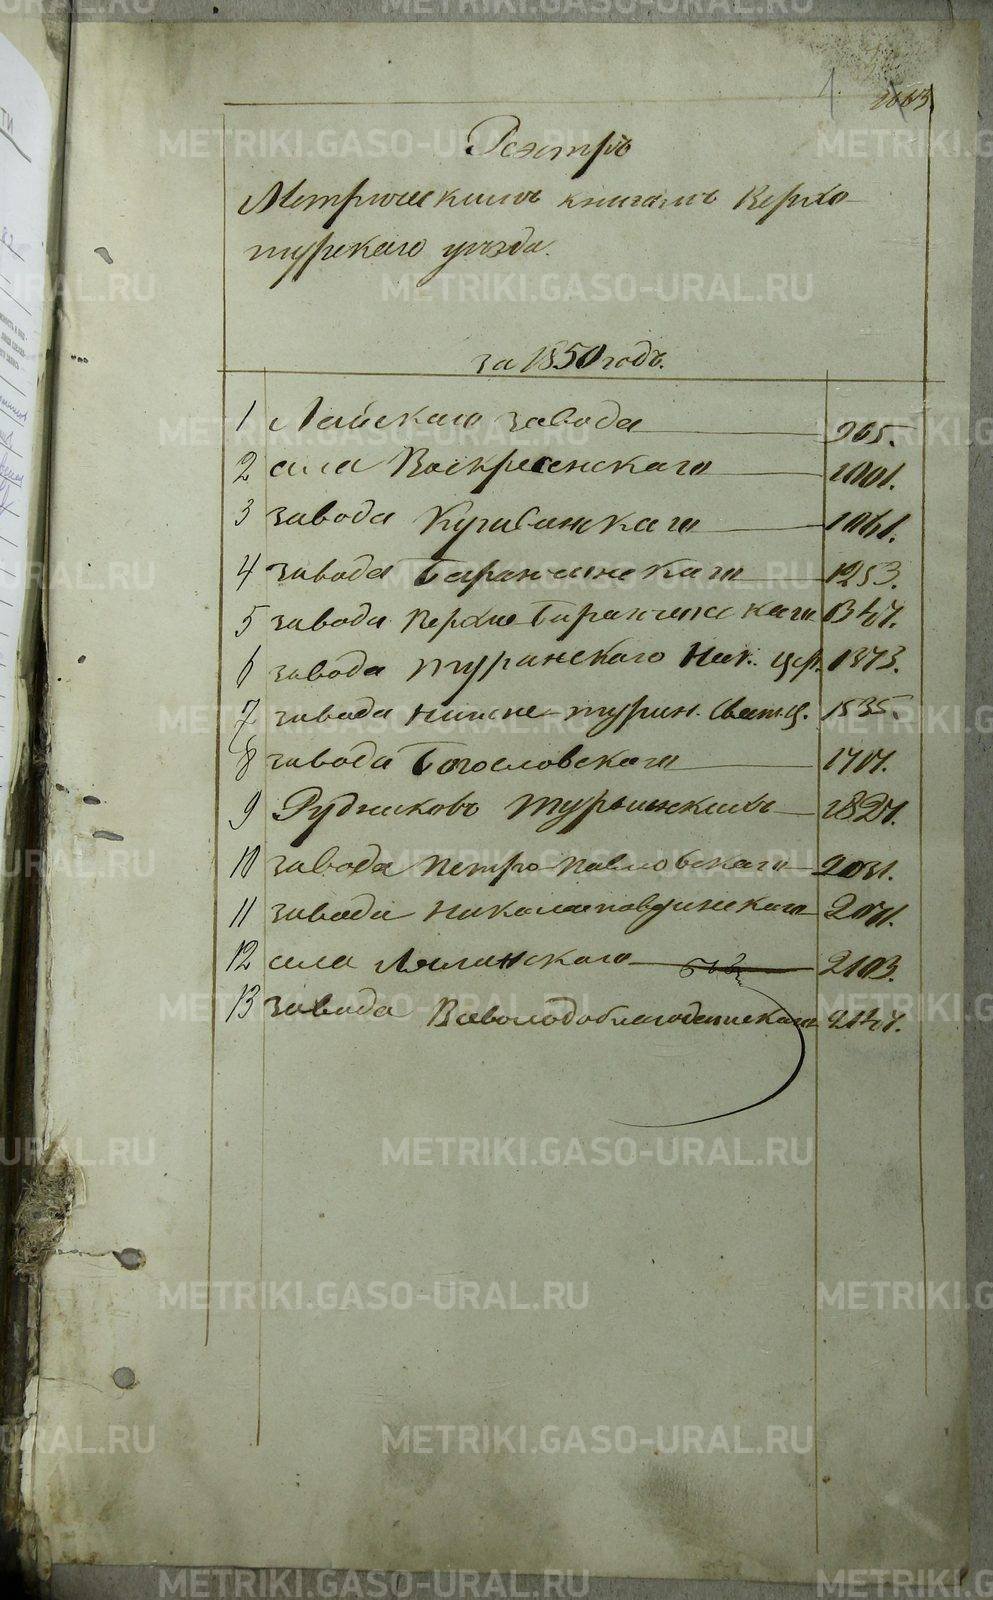 Реэстръ
Метрическимъ книгамъ Верхо
турскаго уѣзда.
за 1850 годъ.
1 Лайскаго завода 965.
2 села Воскресенскаго 1001.
3 завода Кушвинскаго 1061.
4 завода Баранчинскаго 1253.
5 завода Верхне Баранчинскаго
6 завода Туринскаго Ник. цер. 1373.
7 завода Нижне-турин. Свят. ц. 1535.
8 завода Богословскаго
9 Рудниковъ Турьинскихъ
10 завода Петро-павловскаго 2031.
11 завода Николаепавдинскаго
12 села Лялинскаго 2103.
13 завода Всеволодоблагодатскаго
METRIKI.GASO-URAL.RU